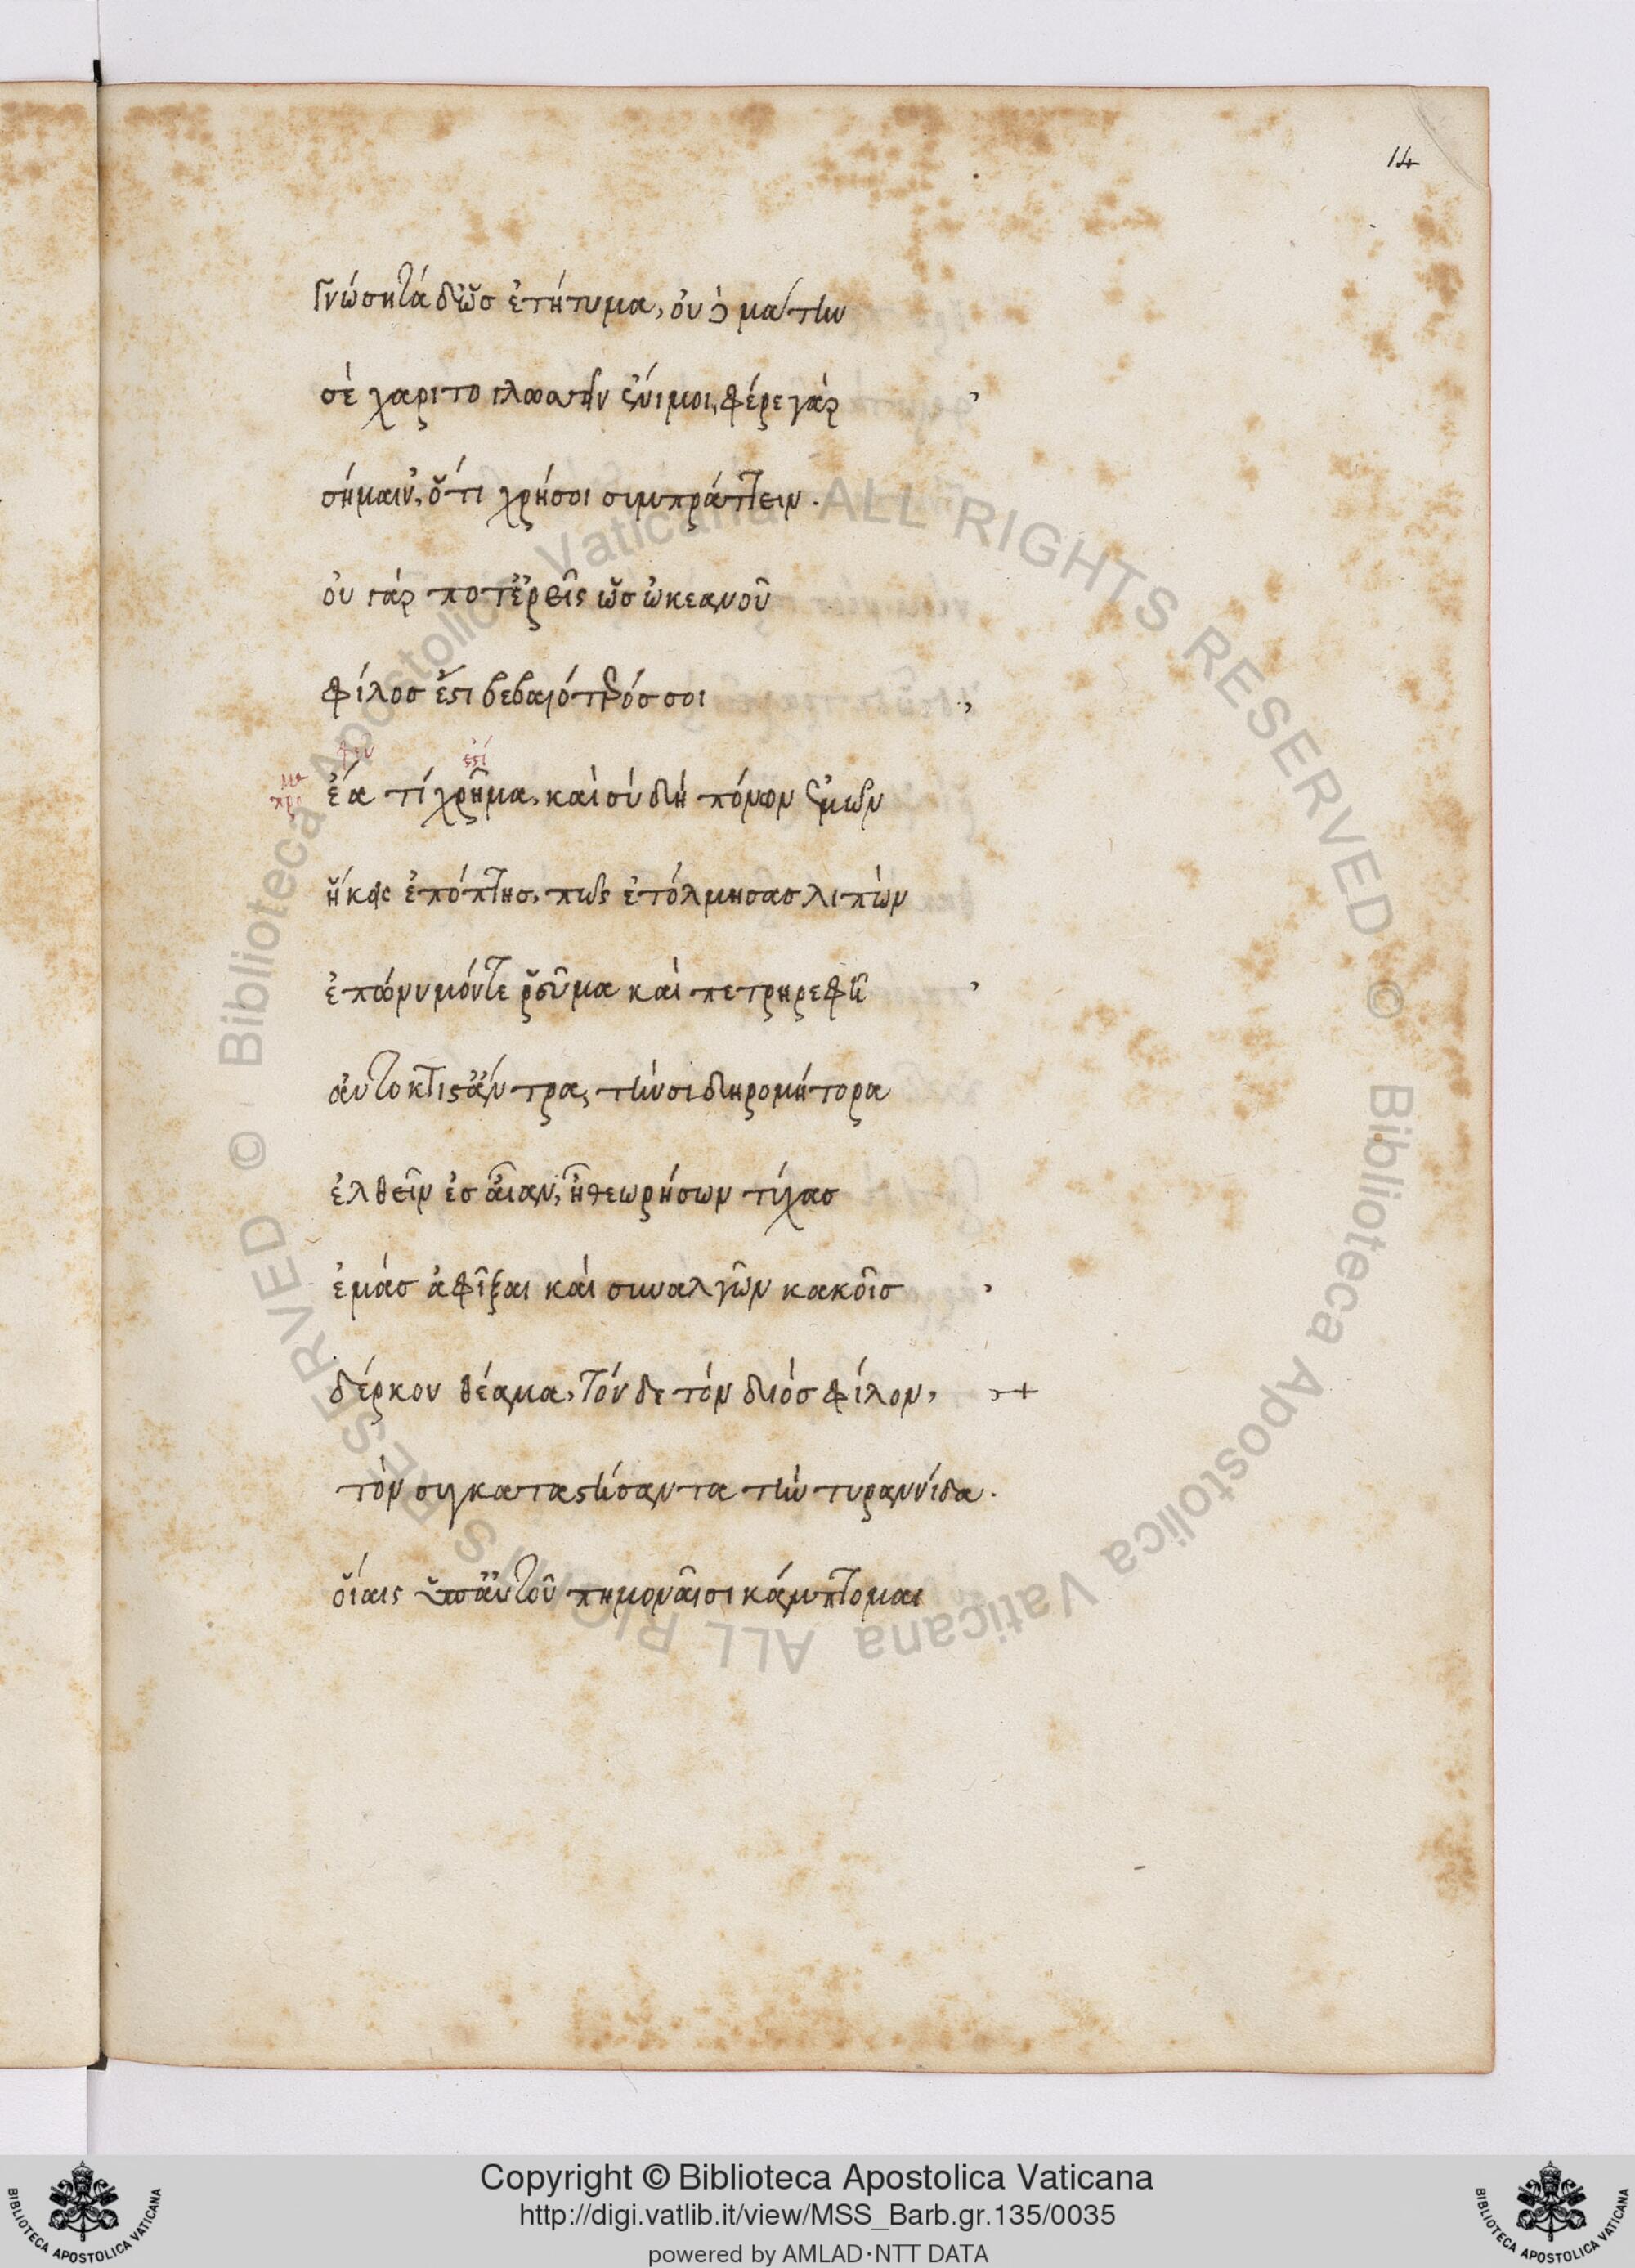 14
Γνώσῃ τά δ' ὡς ἐτήτυμα, οὐδὲ μάτην
σὲ χαριτογλωσσεῖν ἔνι μοι, φέρε γὰρ
σήμαιν', ὅτι χρή σοι συμπράττειν.
οὐ γάρ ποτ' ἐρεῖς ὡς ὠκεανοῦ
φίλος ἔστι βεβαιότερός σοι
φευ
ἐστί
ἔα τί χρῆμα, καὶ σὺ δὴ πόνων ἐμῶν
ἥκεις ἐπόπτης, πῶς ἐτόλμησας λιπὼν
ἐπώνυμόν τε ῥεῦμα καὶ πετρηρεφῆ
αὐτόκτιστ' ἄντρα, τὴν σιδηρομήτορα
ἐλθεῖν ἐς αἶαν, ἦ θεωρήσων τύχας
ἐμὰς ἀφῖξαι καὶ συναλγῶν κακοῖς
δέρκου θέαμα, τόν δε τὸν διὸς φίλον,
τὸν συγκαταστήσαντα τὴν τυραννίδα.
οἵαις ὑπ' αὐτοῦ πημοναῖσι κάμπτομαι
© Biblioteca Apostolica Vaticana ALL RIGHTS RESERVED © Biblioteca Apostolica Vaticana ALL RIGHTS RESERVED
Copyright © Biblioteca Apostolica Vaticana
http://digi.vatlib.it/view/MSS_Barb.gr.135/0035
powered by AMLAD·NTT DATA
BIBLIOTECA APOSTOLICA VATICANA
BIBLIOTECA APOSTOLICA VATICANA